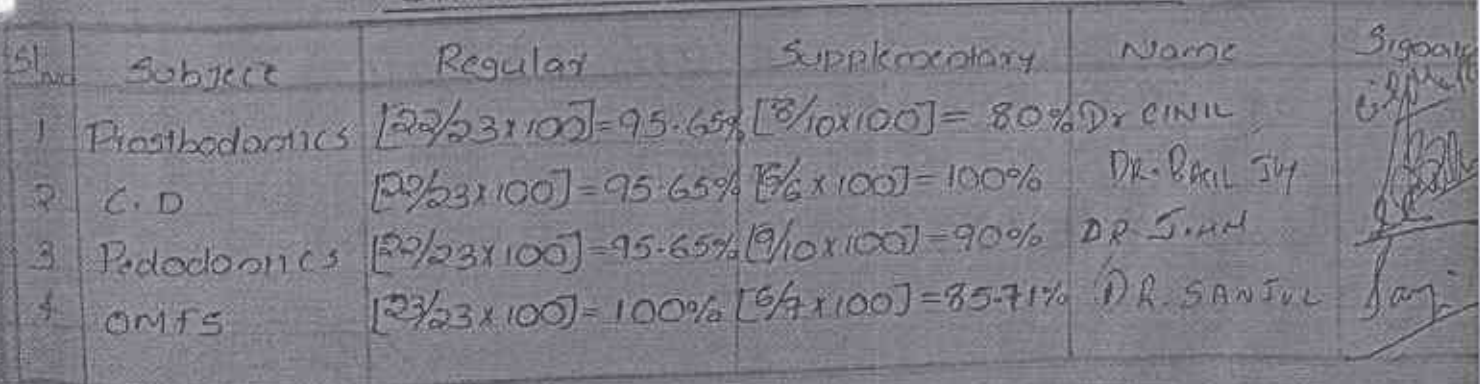 Sl No Subject Regular Supplementary Name
1 Prosthodontics [22/23x100]=95.65% [8/10x100]= 80% Dr CINIL
2 C.D [22/23x100]=95.65% [6/6x100]=100% DR.
3 Pedodontics [22/23x100]=95.65% [9/10x100]=90% DR JOHN
4 OMFS [23/23x100]=100% [6/7x100]=85.71% DR. SANJUL